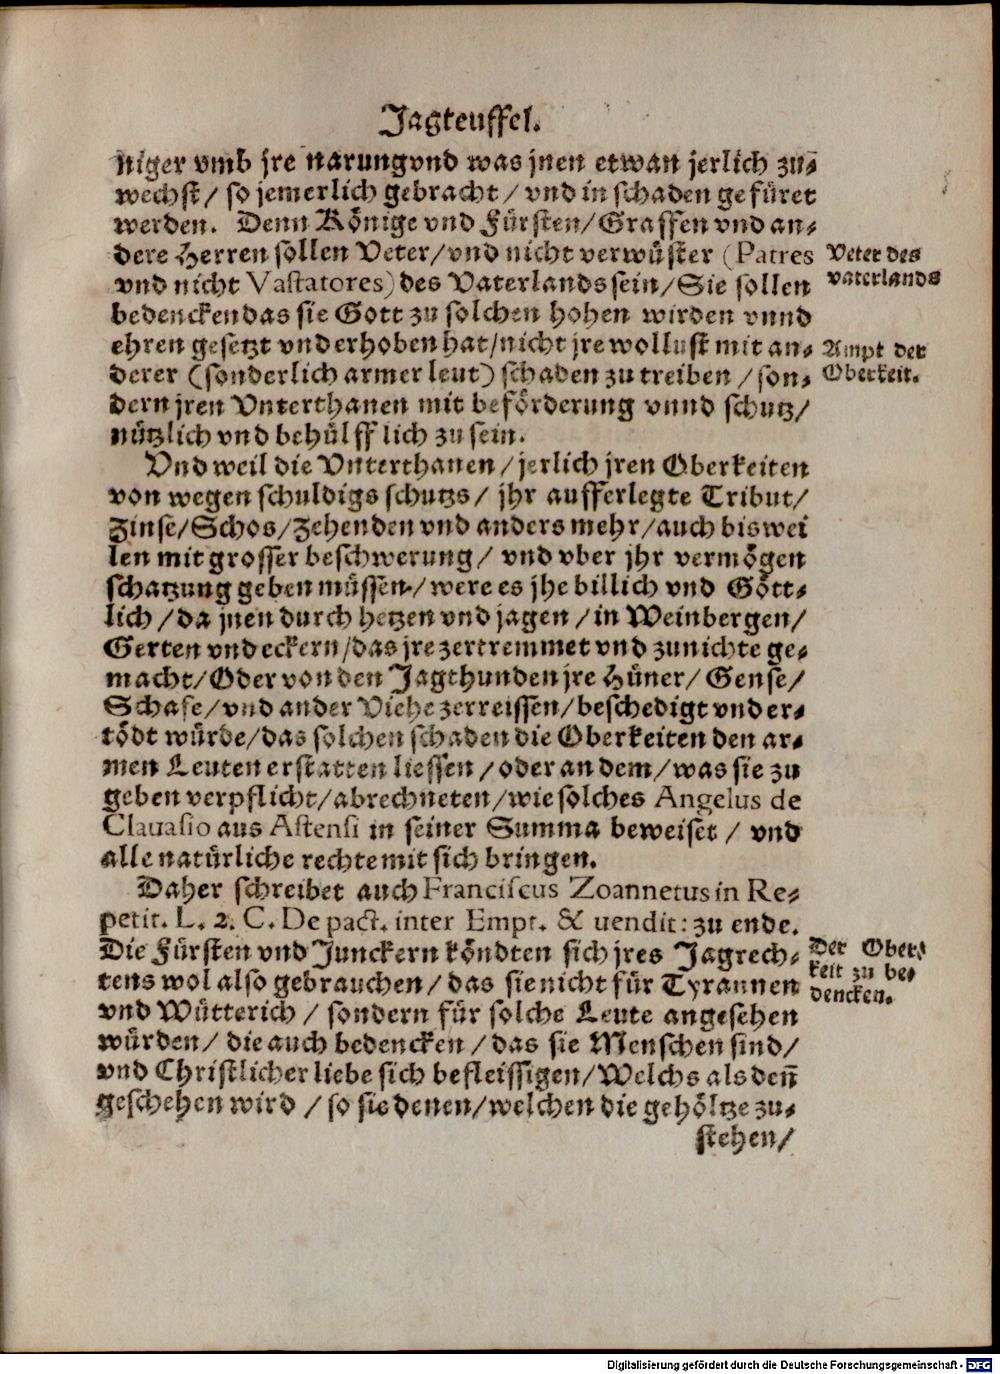 Jagteuffel.
niger vmb jre narungvnd was jnen etwan jerlich zū
wechst / so jemerlich gebracht / vnd in schaden gefüret
werden. Denn Könige vnd Fürsten / Graffen vnd an⸗
dere Herren sollen Veter / vnd nicht verwüster (Patres
vnd nicht Vastatores) des Vaterlands sein / Sie sollen
bedencken das sie Gott zu solchen hohen wirden vnnd
ehren gesetzt vnd erhoben hat / nicht jre wollust mit an⸗
derer (sonderlich armer leut) schaden zu treiben / son⸗
dern jren Vnterthanen mit beförderung vnnd schutz /
nützlich vnd behülfflich zu sein.
Veter des
vaterlands
Ampt der
Oberkeit.
Vnd weil die Vnterthanen / jerlich jren Oberkeiten
von wegen schuldigs schutzs / jhr aufferlegte Tribut /
Zinse / Schos / Zehenden vnd anders mehr / auch biswei
len mit grosser beschwerung / vnd vber jhr vermögen
schatzung geben müssen / were es jhe billich vnd Gött⸗
lich / da jnen durch hetzen vnd jagen / in Weinbergen /
Gerten vnd eckern / das jre zertremmet vnd zunichte ge⸗
macht / Oder von den Jagthunden jre Hüner / Gense /
Schafe / vnd ander Viehe zerreissen / beschedigt vnd er⸗
tödt würde / das solchen schaden die Oberkeiten den ar⸗
men Leuten erstatten liessen / oder an dem / was sie zu
geben verpflicht / abrechneten / wie solches Angelus de
Clauasio aus Astensi in seiner Summa beweiset / vnd
alle natürliche rechte mit sich bringen.
Daher schreibet auch Franciscus Zoannetus in Re⸗
petit. L. 2. C. De pact. inter Empt. & uendit: zu ende.
Die Fürsten vnd Junckern köndten sich jres Jagrech⸗
tens wol also gebrauchen / das sie nicht für Tyrannen
vnd Wütterich / sondern für solche Leute angesehen
würden / die auch bedencken / das sie Menschen sind /
vnd Christlicher liebe sich befleissigen / Welchs als deñ
geschehen wird / so sie denen / welchen die gehöltze zu⸗
Der Ober⸗
keit zu be⸗
dencken.
stehen /
Digitalisierung gefördert durch die Deutsche Forschungsgemeinschaft - DFG